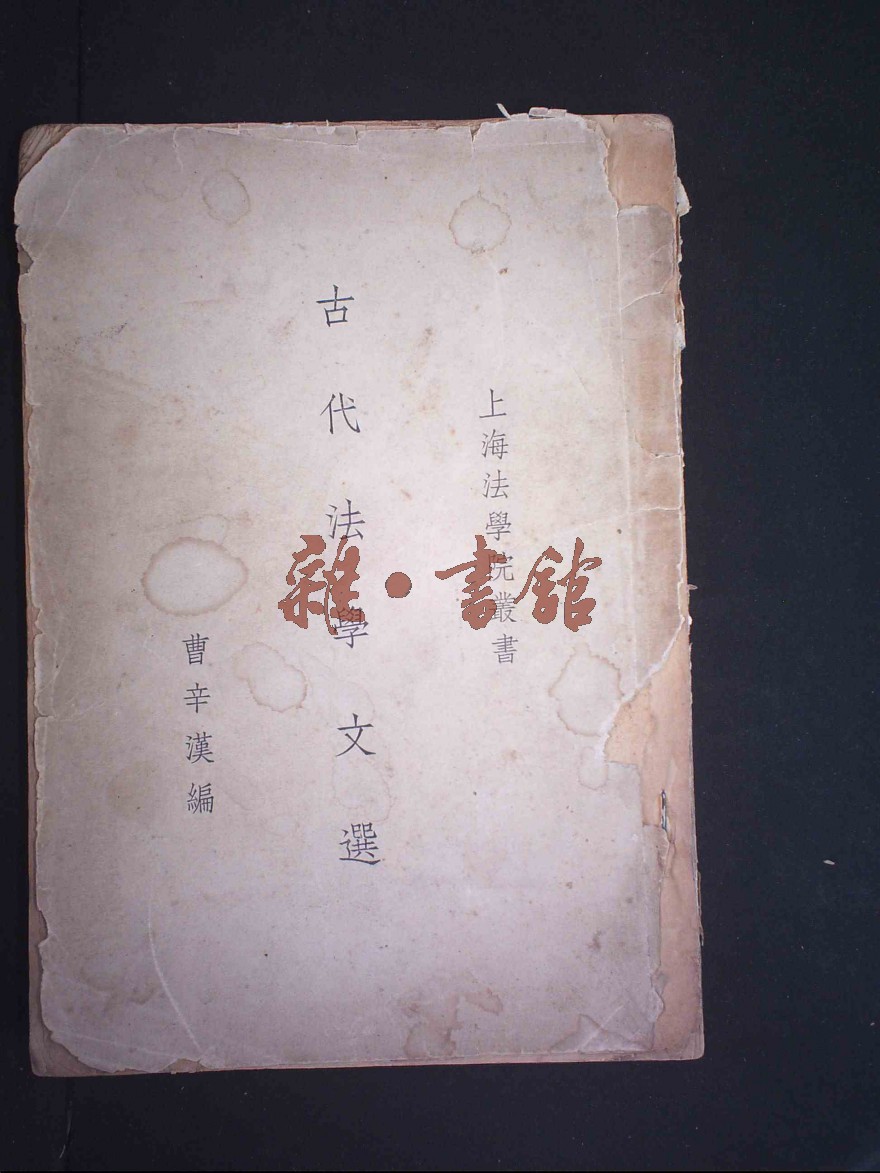 上海法學院叢書
古代法學文選
曹辛漢編
雜·書館